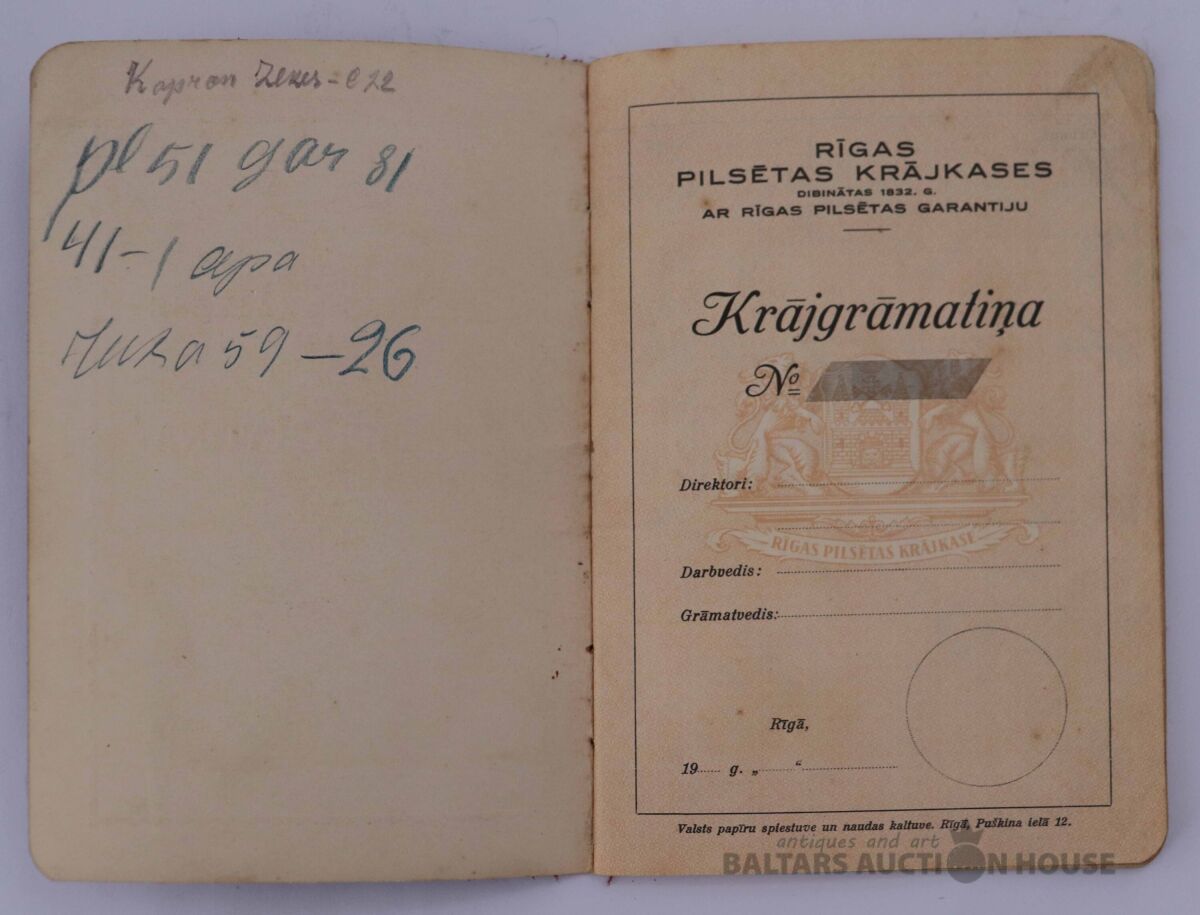 Kapron
pl 51 gar 81
41-1 apa
59-26
RĪGAS
PILSĒTAS KRĀJKASES
DIBINĀTAS 1832. G.
AR RĪGAS PILSĒTAS GARANTIJU
Krājgrāmatiņa
№
Direktori:
RĪGAS PILSĒTAS KRĀJKASE
Darbvedis:
Grāmatvedis:
Rīgā,
19 g. „ “
Valsts papīru spiestuve un naudas kaltuve. Rīgā, Puškina ielā 12.
antiques and art
BALTARS AUCTION HOUSE